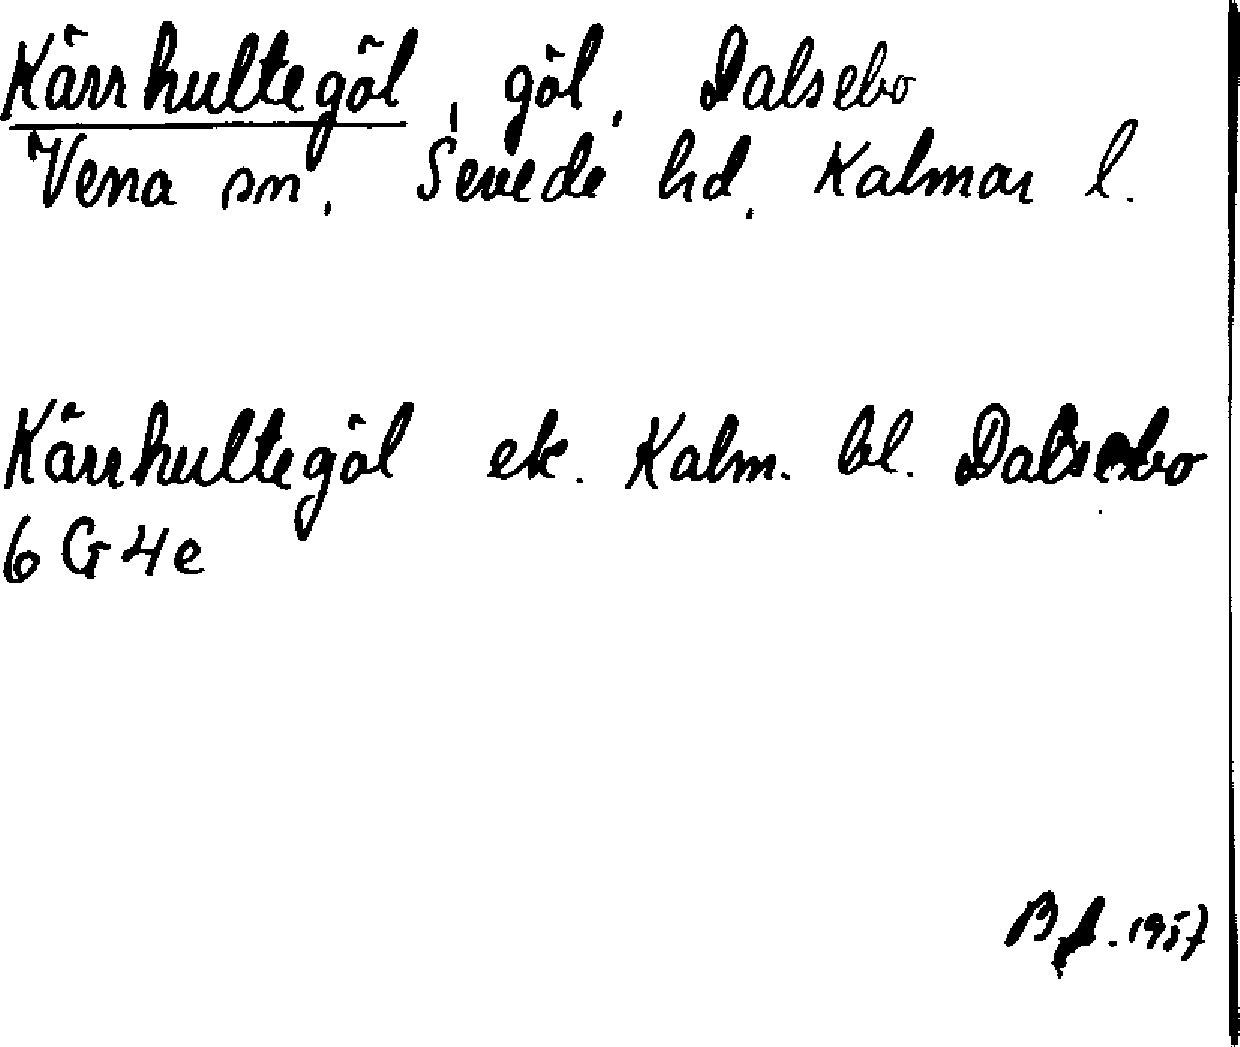 Kärrhultegöl, göl, Dalsebo
Vena sn, Sevede hd, Kalmar l.
Kärrhultegöl ek. Kalm. bl. Dalsebo
6 G 4e
1957